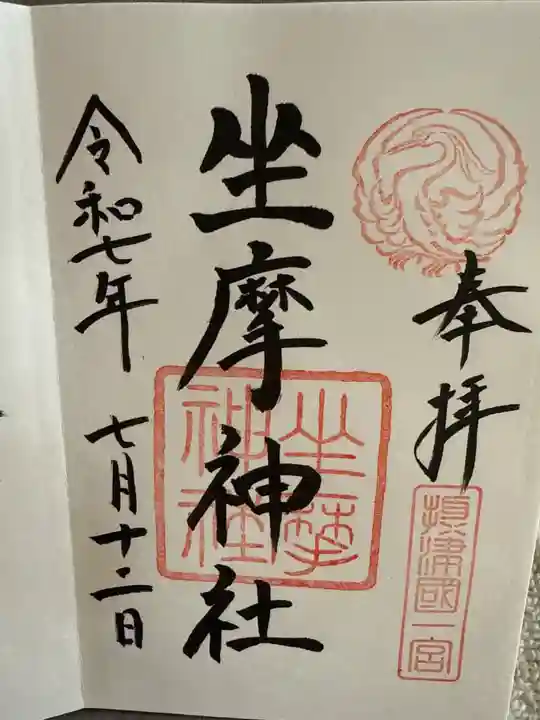 奉拝
摂津國一宮
坐摩神社
坐摩
神社
令和七年 七月十二日